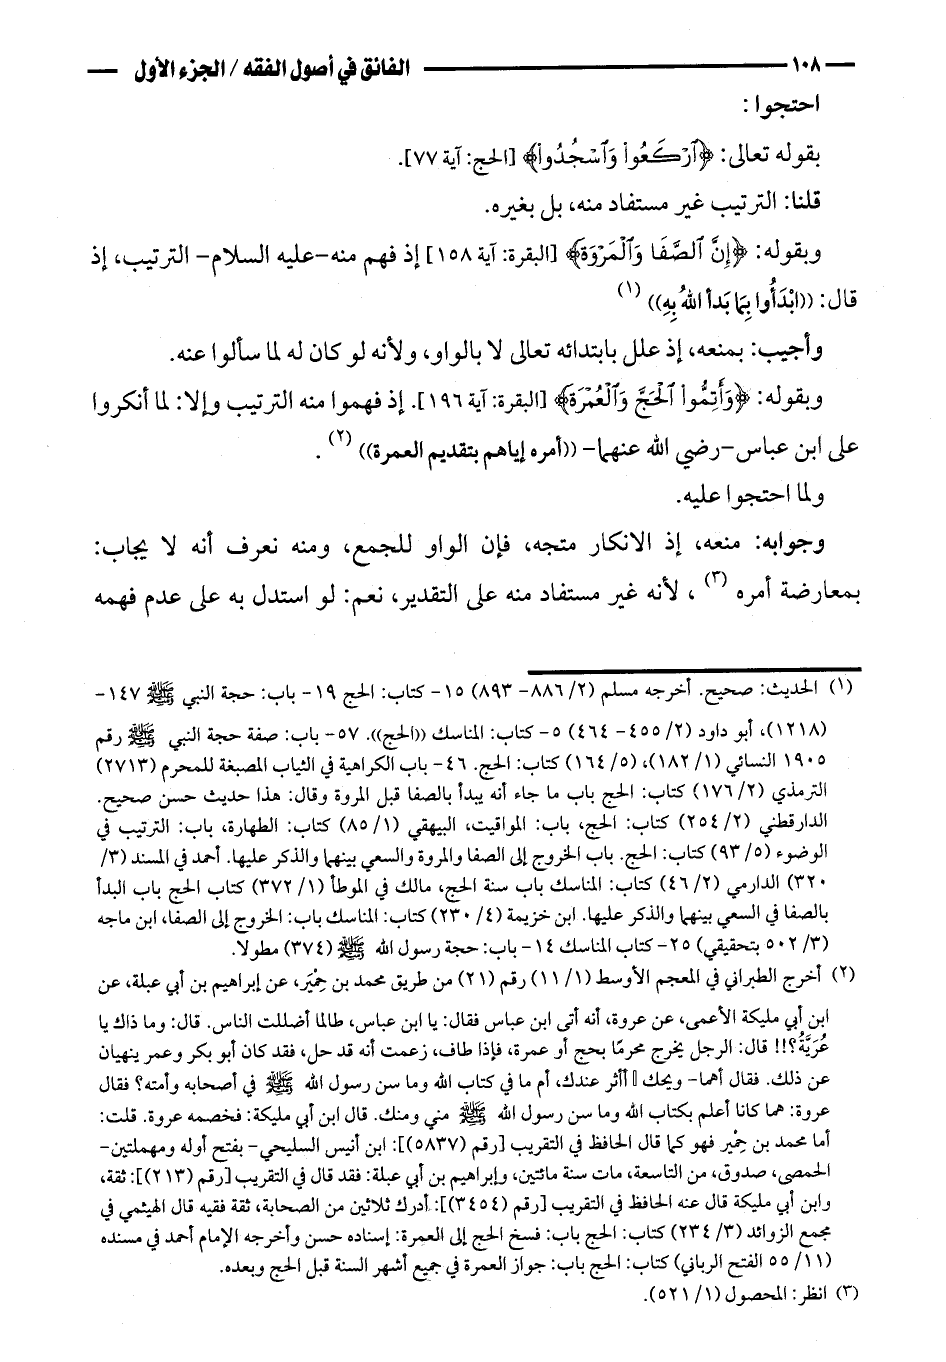 ١٠٨ الفائق في أصول الفقه / الجزء الأول
احتجوا:
بقوله تعالى: ﴿ٱرْكَعُوا۟ وَٱسْجُدُوا۟﴾ [الحج: آية ٧٧].
قلنا: الترتيب غير مستفاد منه، بل بغيره.
وبقوله: ﴿إِنَّ ٱلصَّفَا وَٱلْمَرْوَةَ﴾ [البقرة: آية ١٥٨] إذ فهم منه-عليه السلام- الترتيب، إذ
قال: ((ابْدَأُوا بِمَا بَدأ اللهُ بِهِ)) (١)
وأجيب: بمنعه، إذ علل بابتدائه تعالى لا بالواو، ولأنه لو كان له لما سألوا عنه.
وبقوله: ﴿وَأَتِمُّوا۟ ٱلْحَجَّ وَٱلْعُمْرَةَ﴾ [البقرة: آية ١٩٦]. إذ فهموا منه الترتيب وإلا: لما أنكروا
على ابن عباس-رضي الله عنهما- ((أمره إياهم بتقديم العمرة)) (٢) .
ولما احتجوا عليه.
وجوابه: منعه، إذ الانكار متجه، فإن الواو للجمع، ومنه نعرف أنه لا يجاب:
بمعارضة أمره (٣) ، لأنه غير مستفاد منه على التقدير، نعم: لو استدل به على عدم فهمه
(١) الحديث: صحيح. أخرجه مسلم (٢/ ٨٨٦- ٨٩٣) ١٥- كتاب: الحج ١٩- باب: حجة النبي ﷺ ١٤٧-
(١٢١٨)، أبو داود (٢/ ٤٥٥- ٤٦٤) ٥- كتاب: المناسك ((الحج)). ٥٧- باب: صفة حجة النبي ﷺ رقم
١٩٠٥ النسائي (١/ ١٨٢)، (٥/ ١٦٤) كتاب: الحج. ٤٦- باب الكراهية في الثياب المصبغة للمحرم (٢٧١٣)
الترمذي (٢/ ١٧٦) كتاب: الحج باب ما جاء أنه يبدأ بالصفا قبل المروة وقال: هذا حديث حسن صحيح.
الدارقطني (٢/ ٢٥٤) كتاب: الحج، باب: المواقيت، البيهقي (١/ ٨٥) كتاب: الطهارة، باب: الترتيب في
الوضوء (٥/ ٩٣) كتاب: الحج. باب الخروج إلى الصفا والمروة والسعي بينهما والذكر عليها. أحمد في المسند (٣/
٣٢٠) الدارمي (٢/ ٤٦) كتاب: المناسك باب سنة الحج، مالك في الموطأ (١/ ٣٧٢) كتاب الحج باب البدأ
بالصفا في السعي بينهما والذكر عليها. ابن خزيمة (٤/ ٢٣٠) كتاب: المناسك باب: الخروج إلى الصفا، ابن ماجه
(٣/ ٥٠٢ بتحقيقي) ٢٥- كتاب المناسك ١٤- باب: حجة رسول الله ﷺ (٣٧٤) مطولا.
(٢) أخرج الطبراني في المعجم الأوسط (١/ ١١) رقم (٢١) من طريق محمد بن حِمْيَر، عن إبراهيم بن أبي عبلة، عن
ابن أبي مليكة الأعمى، عن عروة، أنه أتى ابن عباس فقال: يا ابن عباس، طالما أضللت الناس. قال: وما ذاك يا
عُرَيَّةُ؟!! قال: الرجل يخرج محرمًا بحج أو عمرة، فإذا طاف، زعمت أنه قد حل، فقد كان أبو بكر وعمر ينهيان
عن ذلك. فقال أهما- ويحك أآثر عندك، أم ما في كتاب الله وما سن رسول الله ﷺ في أصحابه وأمته؟ فقال
عروة: هما كانا أعلم بكتاب الله وما سن رسول الله ﷺ مني ومنك. قال ابن أبي مليكة: فخصمه عروة. قلت:
أما محمد بن حِمْير فهو كما قال الحافظ في التقريب [رقم (٥٨٣٧)]: ابن أنيس السليحي- بفتح أوله ومهملتين-
الحمصي، صدوق، من التاسعة، مات سنة مائتين، وإبراهيم بن أبي عبلة: فقد قال في التقريب [رقم (٢١٣)]: ثقة،
وابن أبي مليكة قال عنه الحافظ في التقريب [رقم (٣٤٥٤)]: أدرك ثلاثين من الصحابة، ثقة فقيه قال الهيثمي في
مجمع الزوائد (٣/ ٢٣٤) كتاب: الحج باب: فسخ الحج إلى العمرة: إسناده حسن وأخرجه الإمام أحمد في مسنده
(١١/ ٥٥ الفتح الرباني) كتاب: الحج باب: جواز العمرة في جميع أشهر السنة قبل الحج وبعده.
(٣) انظر: المحصول (١/ ٥٢١).